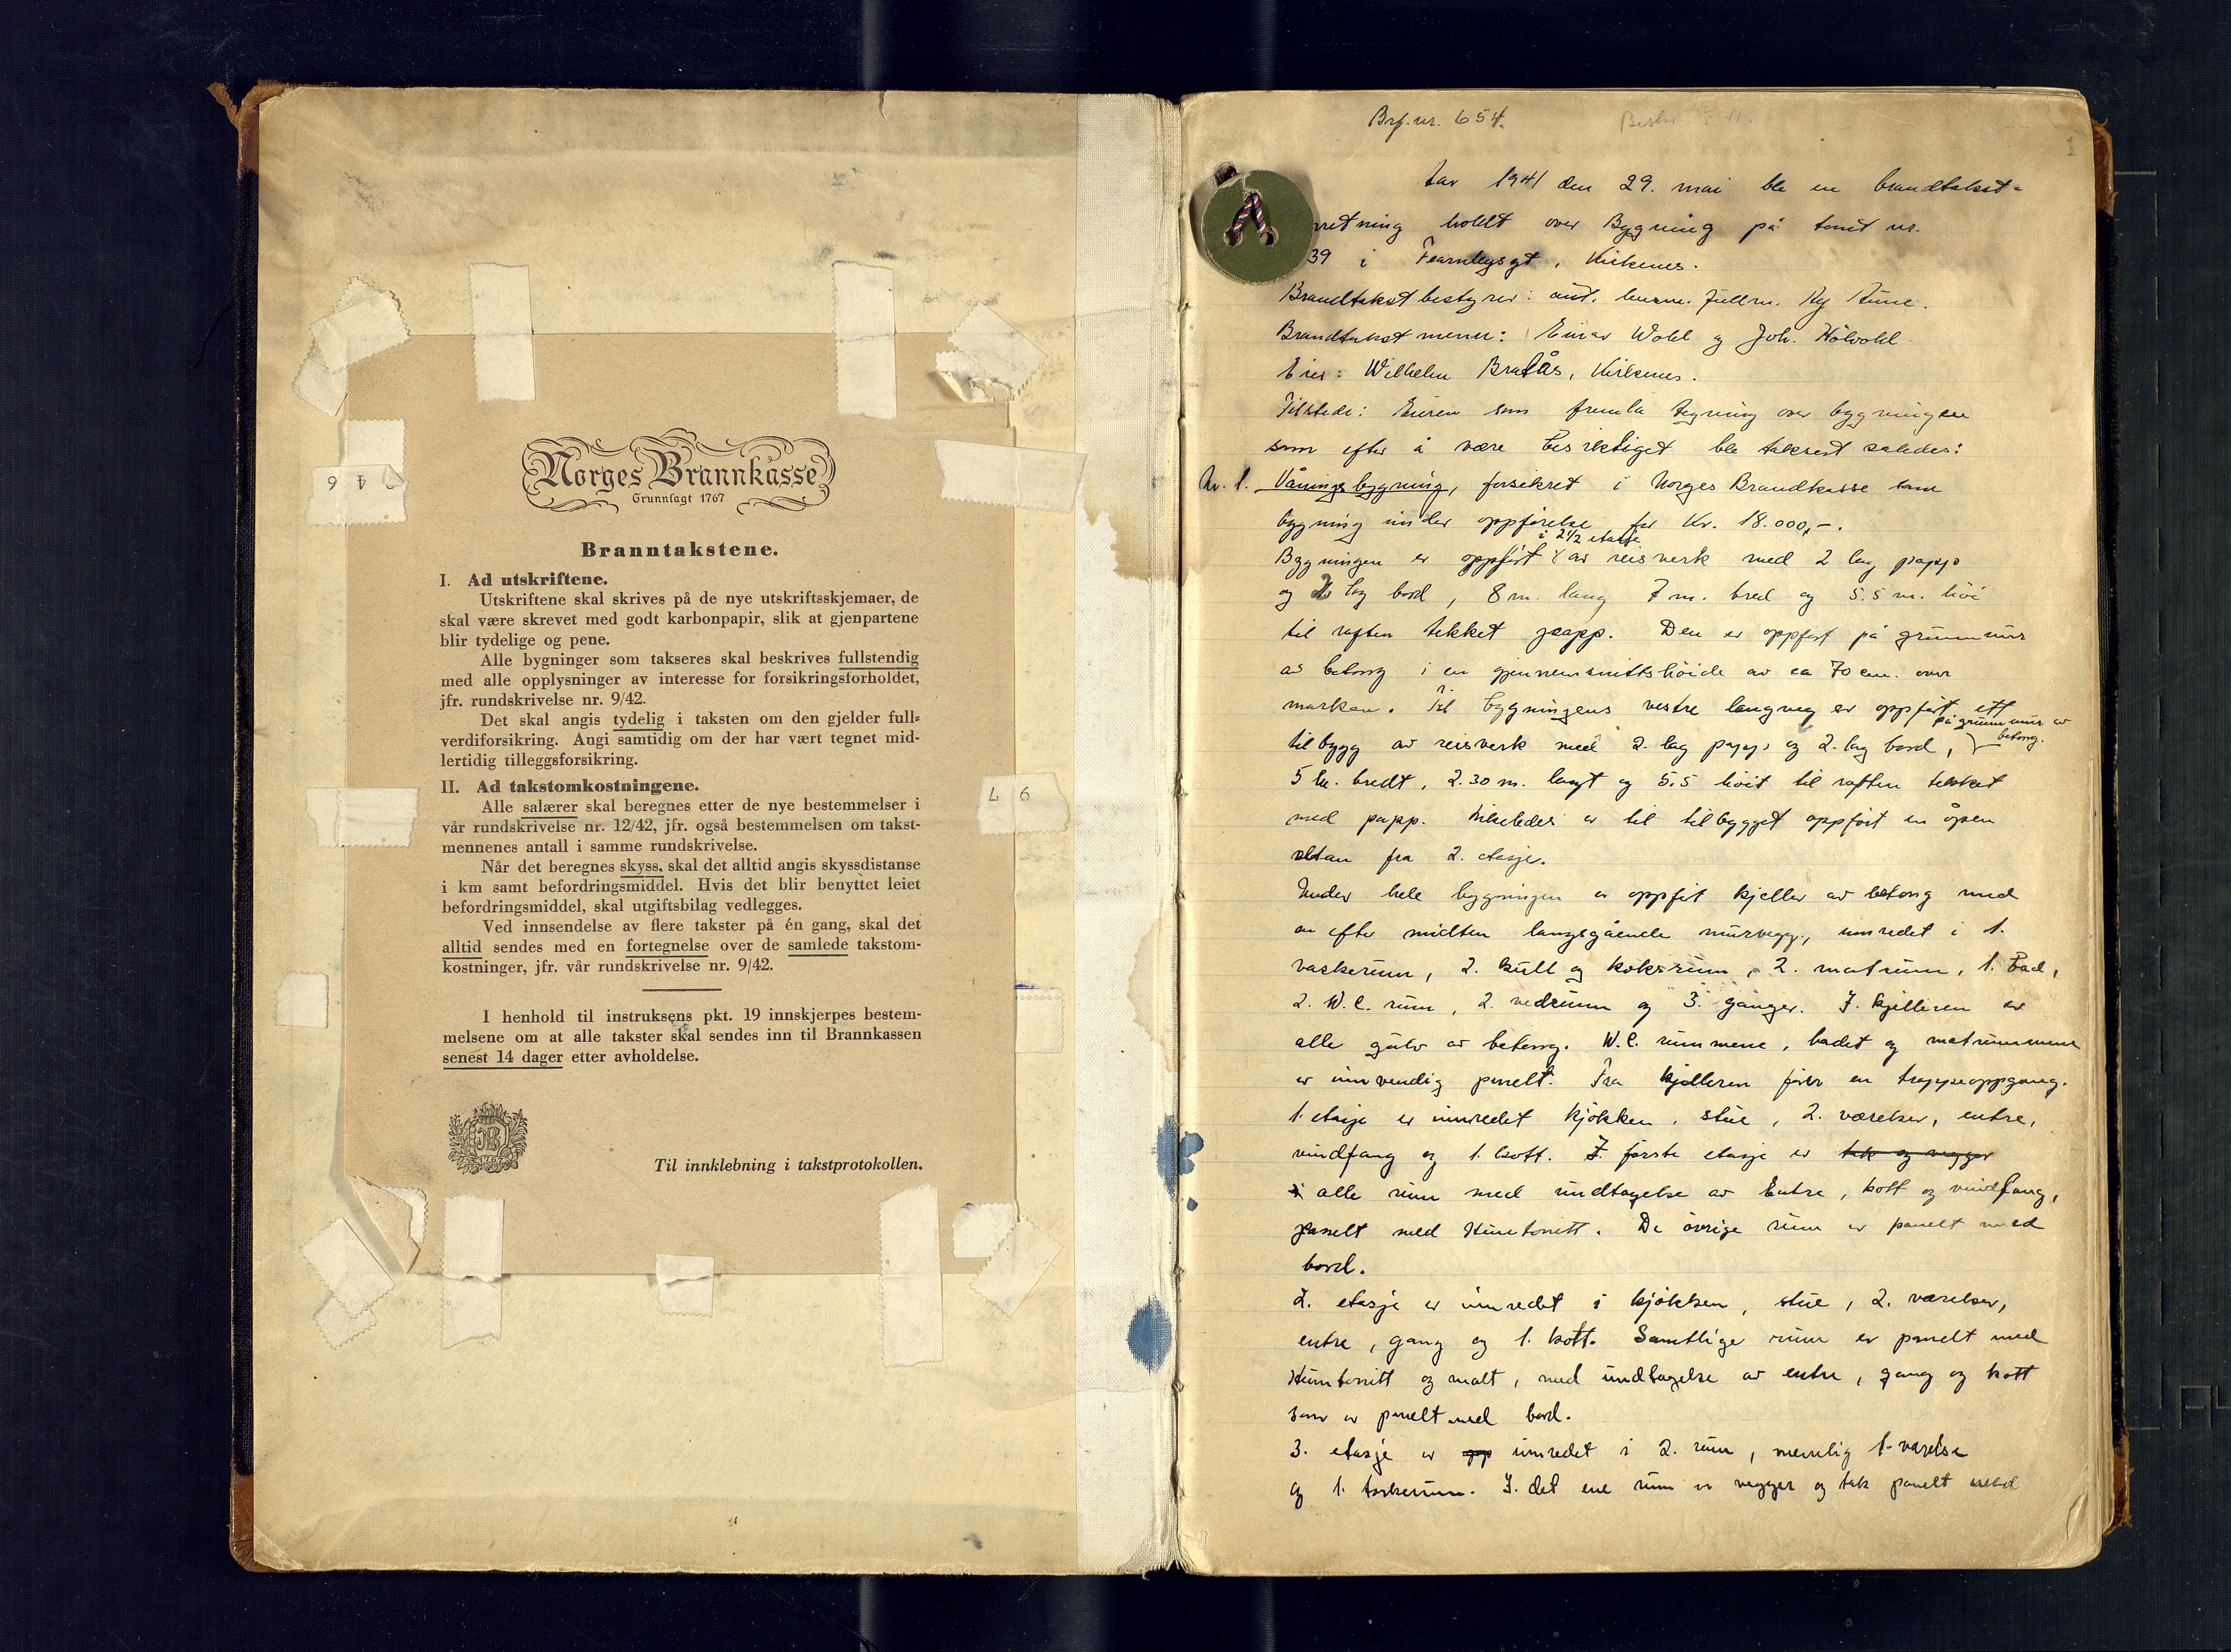 Norges Brannkasse
Grunnlagt 1767
Branntakstene.
I. Ad utskriftene.
Utskriftene skal skrives på de nye utskriftsskjemaer, de
skal være skrevet med godt karbonpapir, slik at gjenpartene
blir tydelige og pene.
Alle bygninger som takseres skal beskrives fullstendig
med alle opplysninger av interesse for forsikringsforholdet,
jfr. rundskrivelse nr. 9/42.
Det skal angis tydelig i taksten om den gjelder full-
verdiforsikring. Angi samtidig om der har vært tegnet mid-
lertidig tilleggsforsikring.
II. Ad takstomkostningene.
Alle salærer skal beregnes etter de nye bestemmelser i
vår rundskrivelse nr. 12/42, jfr. også bestemmelsen om takst-
mennenes antall i samme rundskrivelse.
Når det beregnes skyss, skal det alltid angis skyssdistanse
i km samt befordringsmiddel. Hvis det blir benyttet leiet
befordringsmiddel, skal utgiftsbilag vedlegges.
Ved innsendelse av flere takster på én gang, skal det
alltid sendes med en fortegnelse over de samlede takstom-
kostninger, jfr. vår rundskrivelse nr. 9/42.
I henhold til instruksens pkt. 19 innskjerpes bestem-
melsene om at alle takster skal sendes inn til Brannkassen
senest 14 dager etter avholdelse.
Til innklebning i takstprotokollen.
Brf. nr. 654.
1
1941 den 29. mai ble en brandtakst-
rretning holdt over Bygning på tomt nr.
39 i Fearnleysgt, Kirkenes.
Brandtakstbestyrer: aut. fullm.
Brandtakstmenn: Einar Wold og Joh. Holvold
Eier: Wilhelm Bratås, Kirkenes.
Tilstede: Eieren som fremla tegning over bygningen
som efter å være besiktiget ble taksert således:
Nr. 1. Våningsbygning, forsikret i Norges Brandkasse som
bygning under oppførelse for Kr. 18.000,-.
i 2 1/2 etasje
Bygningen er oppført av reisverk med 2 lag papp
og 2 lag bord, 8 m. lang 7 m. bred og 5.5 m. høi
til raften tekket papp. Den er oppført på grunnmur
av betong i en gjennemsnittshøide av ca 70 cm. over
marken. Til bygningens vestre langveg er oppført ett
på grunnmur av betong.
tilbygg av reisverk med 2. lag papp og 2. lag bord,
5 m. bredt, 2.30 m. langt og 5.5 høit til raften tekket
med papp. Likeledes er til tilbygget oppført en åpen
altan fra 2. etasje.
Under hele bygningen er oppført kjeller av betong med
en efter midten langsgående murvegg, innredet i 1.
vaskerum, 2. kull og koksrum, 2. matrum, 1. Bad,
2. W.C. rum, 2. vedrum og 3. ganger. I kjelleren er
alle gulv av betong. W.C. rummene, badet og matrummene
er innvendig panelt. Fra kjelleren fører en trappeoppgang.
1. etasje er innredet kjøkken, stue, 2. værelser, entre,
vindfang og 1. kott. I første etasje er tak og vegger
i alle rum med undtagelse av Entre, kott og vindfang,
panelt med Huntonitt. De øvrige rum er panelt med
bord.
2. etasje er innredet i kjøkken, stue, 2. værelser,
entre, gang og 1. kott. Samtlige rum er panelt med
Huntonitt og malt, med undtagelse av entre, gang og kott
som er panelt med bord.
3. etasje er opp innredet i 2. rum, nemlig 1 værelse
og 1. tørkerum. I det ene rum er vegger og tak panelt med